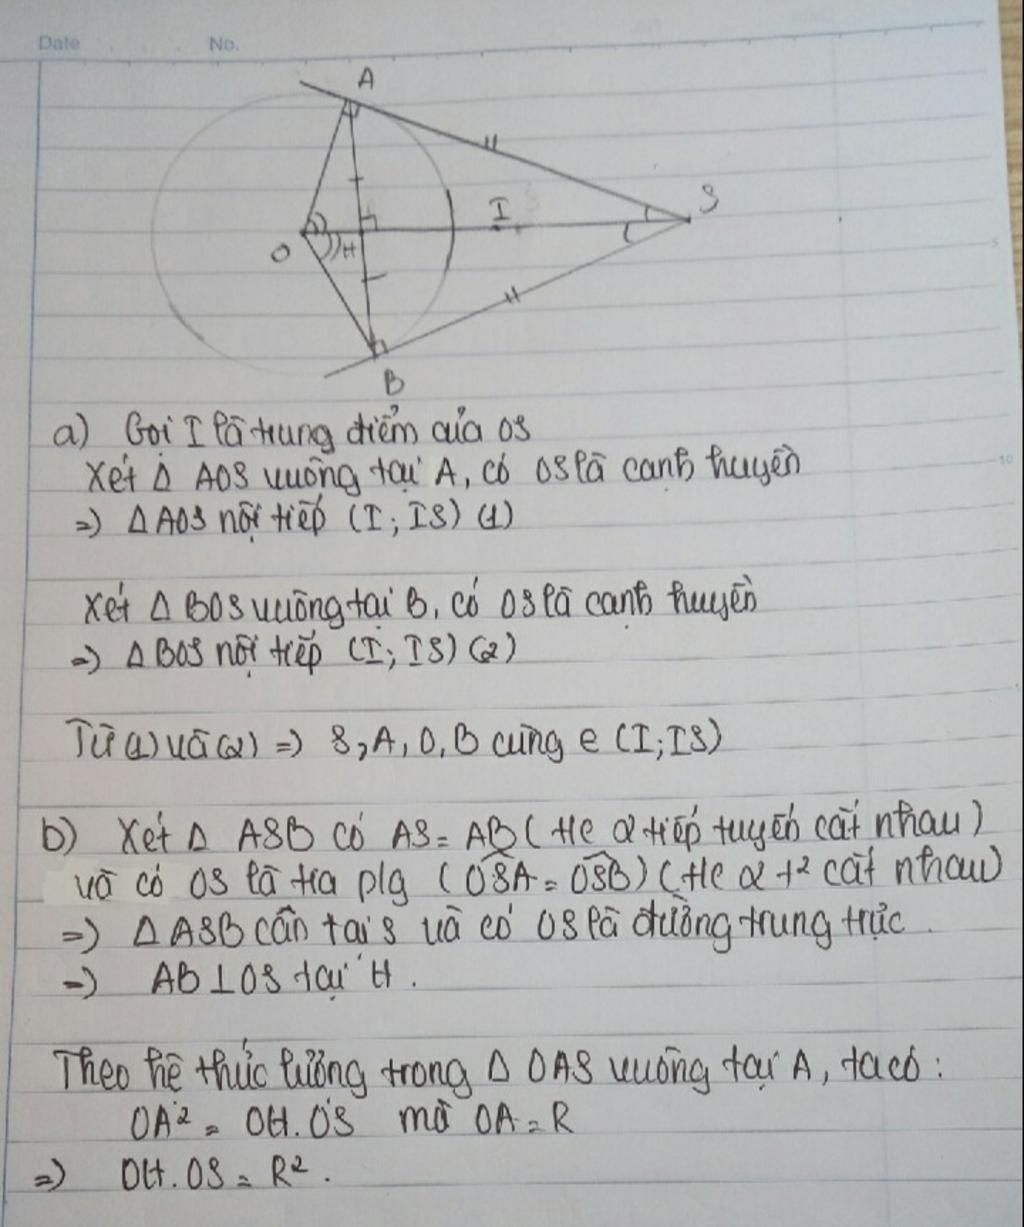 Date No.
A
S
I
O
H
B
a) Gọi I là trung điểm của OS
Xét Δ AOS vuông tại A, có OS là cạnh huyền
=) Δ AOS nội tiếp (I; IS) (1)
Xét Δ BOS vuông tại B, có OS là cạnh huyền
=) Δ BOS nội tiếp (I; IS) (2)
Từ (1) và (2) =) S, A, O, B cùng ∈ (I; IS)
b) Xét Δ ASB có AS = AB (t/c 2 tiếp tuyến cắt nhau)
và có OS là tia p/g (OSA = OSB) (t/c 2 t² cắt nhau)
=) Δ ASB cân tại S và có OS là đường trung trực.
=) AB ⊥ OS tại H.
Theo hệ thức lượng trong Δ OAS vuông tại A, ta có:
OA² = OH. OS mà OA = R
=) OH. OS = R².
5
10